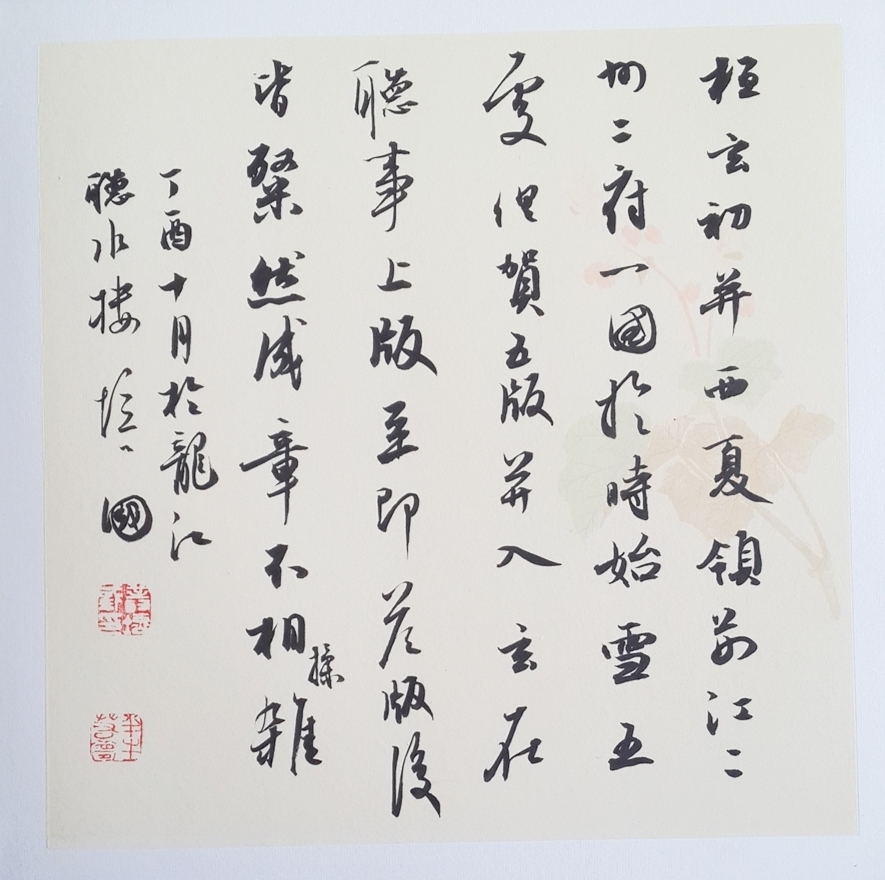 桓玄初并西夏領荊江二
州二府一國於時始雪五
處俱賀五版并入玄在
聽事上版至即荅版後
皆粲然成章不相揉雜
丁酉十月於龍江
聽水樓 國